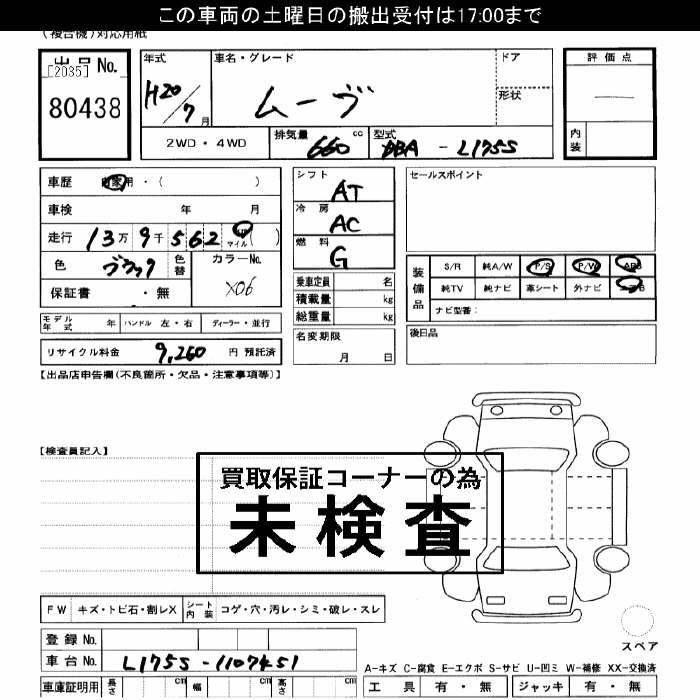 この車両の土曜日の搬出受付は17:00まで
(複合機)対応用紙
出品 No.
[2035]
80438
年式 車名・グレード ドア
H20/7月 ムーヴ 形状
2WD・4WD 排気量 660 cc 型式 DBA - L175S
評価点
内装
車歴 自家用・( )
車検 年 月
走行 13万9千562 マイル( )
色 ブラック 色替 カラーNo. X06
保証書 ・無
モデル年式 年 ハンドル 左・右 ディーラー・並行
リサイクル料金 9,260 円 預託済
シフト AT
冷房 AC
燃料 G
乗車定員 名
積載量 kg
総重量 kg
名変期限
月 日
セールスポイント
装備品 S/R 純A/W P/S P/W ABS
純TV 純ナビ 革シート 外ナビ
ナビ型番:
後日品
【出品店申告欄(不良個所・欠品・注意事項等)】
【検査員記入】
買取保証コーナーの為
未検査
FW キズ・トビ石・割レX シート内装 コゲ・穴・汚レ・シミ・破レ・スレ
登録 No.
車台 No. L175S-1107451
車庫証明用 長さ cm 幅 cm 高さ cm
スペア
A-キズ C-腐食 E-エクボ S-サビ U-凹ミ W-補修 XX-交換済
工具 有・無 ジャッキ 有・無